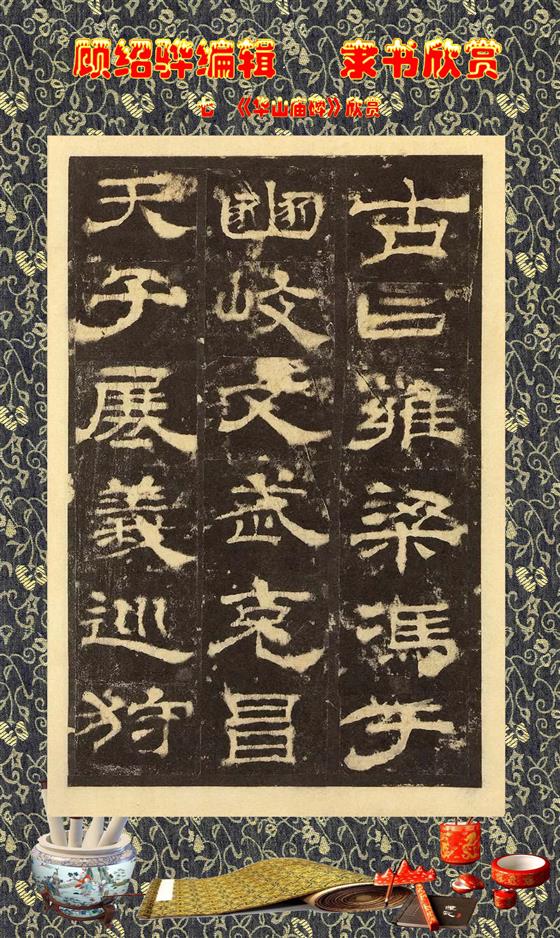 顾绍骅编辑 隶书欣赏
《华山庙碑》欣赏
古曰雍梁馮于
豳岐文武克昌
天子展義巡狩